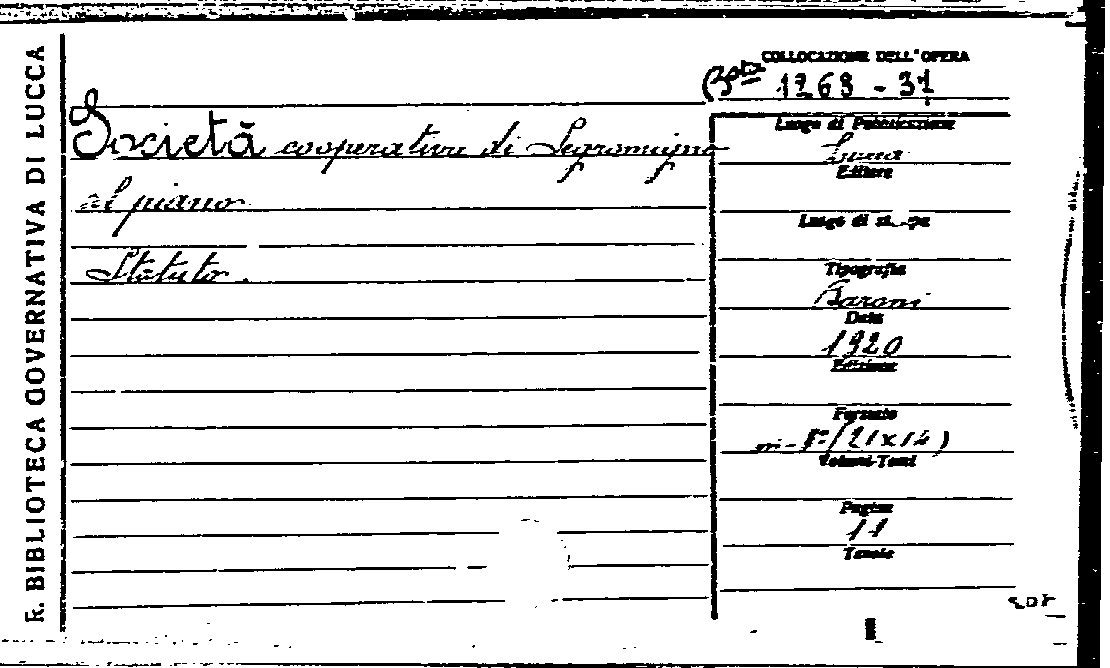 R. BIBLIOTECA GOVERNATIVA DI LUCCA
COLLOCAZIONE DELL'OPERA
Bta 1268 - 31
Società cooperativa di Segromigno
al piano
Statuto.
Luogo di Pubblicazione
Lucca
Editore
Luogo di stampa
Tipografia
Baroni
Data
1920
Edizione
Formato
in-8° (21x14)
Volumi-Tomi
Pagine
11
Tavole